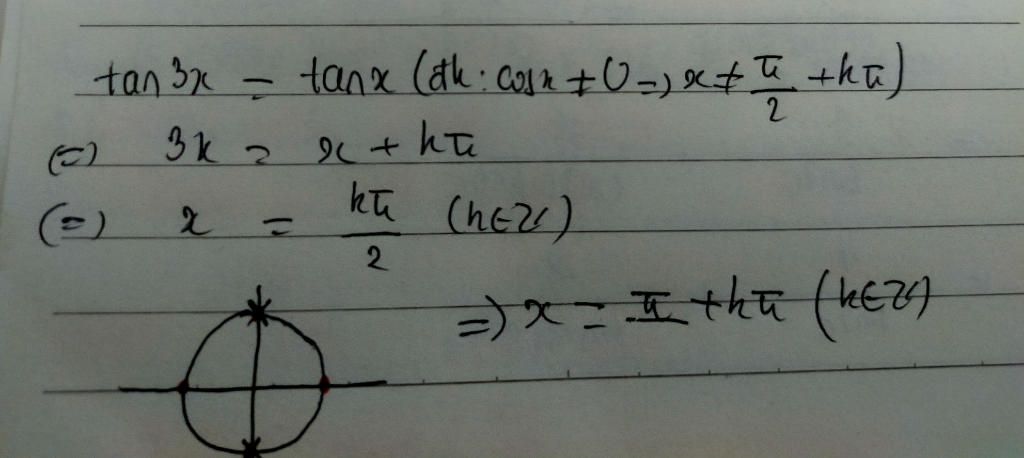 tan3x = tanx (đk: cosx ≠ 0 => x ≠ π/2 + kπ)
(=) 3x = x + kπ
(=) x = kπ/2 (k∈Z)
=> x = π + kπ (k∈Z)